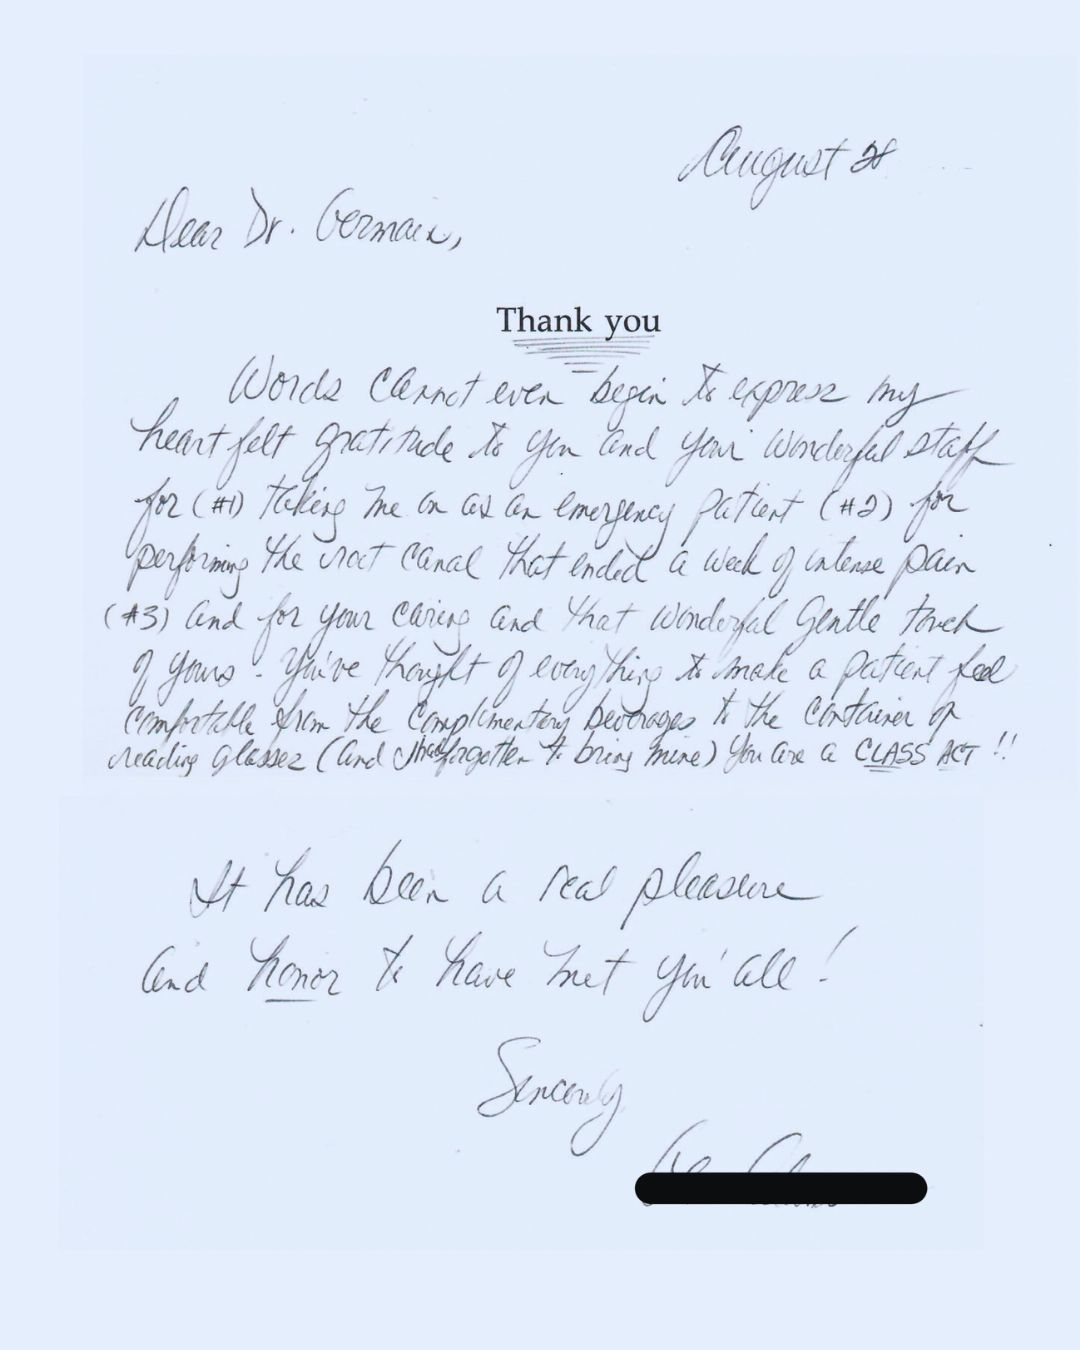 August 28
Dear Dr. Germain,
Thank you
Words cannot even begin to express my
heartfelt gratitude to you and your wonderful staff
for (#1) taking me on as an emergency patient (#2) for
performing the root canal that ended a week of intense pain
(#3) and for your caring and that wonderful gentle touch
of yours. You've thought of everything to make a patient feel
comfortable from the complimentary beverages to the container of
reading glasses (and I had forgotten to bring mine) You are a CLASS ACT !!
It has been a real pleasure
and honor to have met you all!
Sincerely